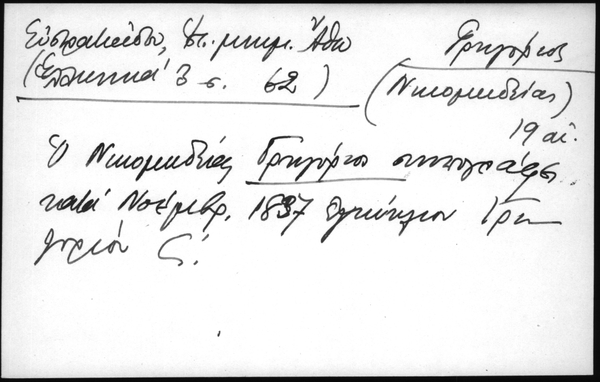 Εὐστρατιάδου, Ἱστ. μνημ. Ἄθω
(Ἑλληνικά 3 σ. 62)
Γρηγόριος
(Νικομηδείας)
19 αἰ.
Ὁ Νικομηδείας Γρηγόριος συνυπογράφει
κατά Νοέμβρ. 1837 σιγίλλιον Γρη-
γορίου Ϛ΄.